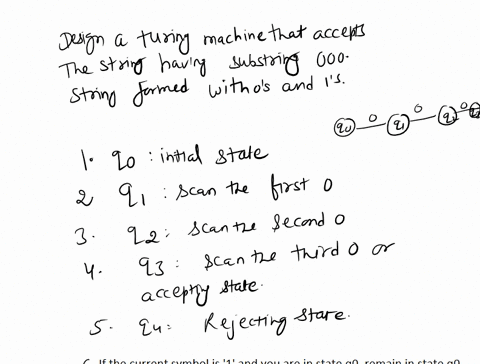 Design a turing machine that accepts
The string having substring 000.
String formed with 0's and 1's.
q0 0 q1 0 q2 0
1. q0 : initial state
2 q1 : scan the first 0
3. q2 : scan the second 0
4. q3 : scan the third 0 or
accepting state.
5. q4 : Rejecting state.
6. If the current symbol is '1' and you are in state q0, remain in state q0